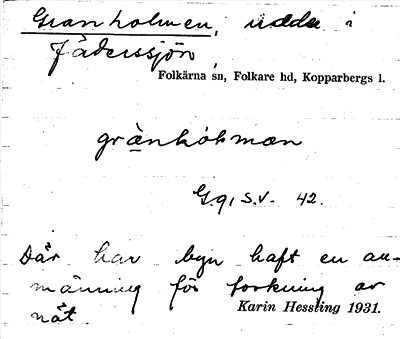 Granholmen, udde i
Fäderssjön,
Folkärna sn, Folkare hd, Kopparbergs l.
grànhòlmæn
G.q, s.v. 42.
Där har byn haft en an-
männing för torkning av
nät.
Karin Hessling 1931.